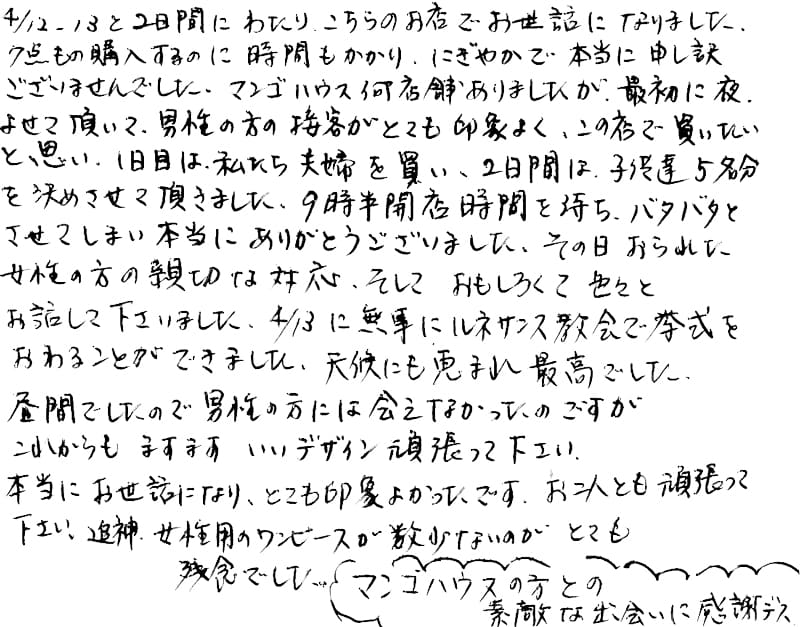 4/12-13と2日間にわたり、こちらのお店でお世話になりました。
7点もの購入するのに時間もかかり、にぎやかで本当に申し訳
ございませんでした。マンゴハウス何店舗ありましたが、最初に夜、
よせて頂いて、男性の方の接客がとても印象よく、この店で買いたい
と、思い、1日目は、私たち夫婦を買い、2日間は、子供達5名分
を決めさせて頂きました。9時半開店時間を待ち、バタバタと
させてしまい本当にありがとうございました、その日おられた
女性の方の親切な対応、そしておもしろくて色々と
お話して下さいました、4/13に無事にルネサンス教会で挙式を
おわることができました、天候にも恵まれ最高でした、
昼間でしたので男性の方には会えなかったのですが
これからもますますいいデザイン頑張って下さい、
本当にお世話になり、とても印象よかったです、お二人とも頑張って
下さい、追神、女性用のワンピースが数少ないのがとても
残念でした…
マンゴハウスの方との
素敵な出会いに感謝デス